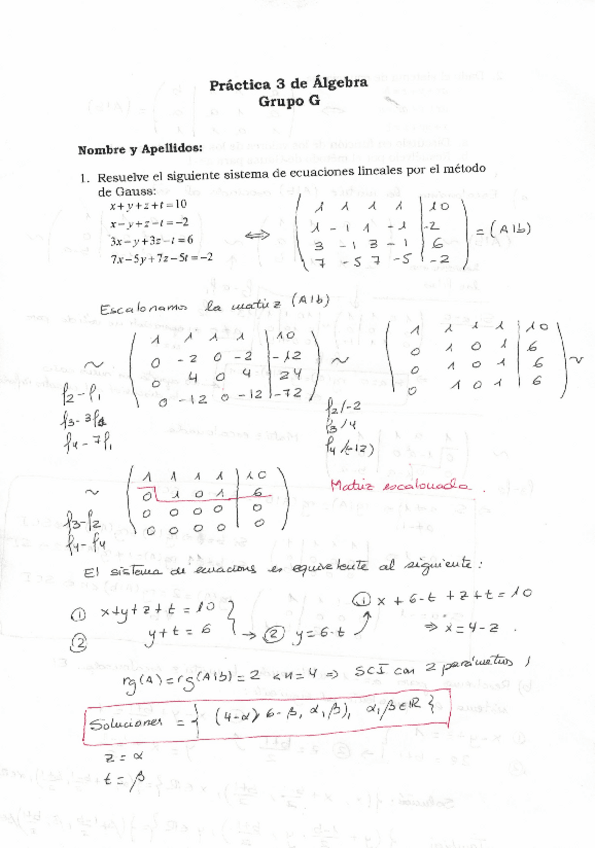 Práctica 3 de Álgebra
Grupo G
Nombre y Apellidos:
1. Resuelve el siguiente sistema de ecuaciones lineales por el método
de Gauss:
x+y+z+t=10
x-y+z-t=-2
3x-y+3z-t=6
7x-5y+7z-5t=-2
⇔ ( 1 1 1 1 | 10
1 -1 1 -1 | -2
3 -1 3 -1 | 6
7 -5 7 -5 | -2 ) = (A|b)
Escalonamos la matriz (A|b)
~ ( 1 1 1 1 | 10
0 -2 0 -2 | -12
0 4 0 4 | 24
0 -12 0 -12 | -72 )
f2-f1
f3-3f1
f4-7f1
~ ( 1 1 1 1 | 10
0 1 0 1 | 6
0 1 0 1 | 6
0 1 0 1 | 6 ) ~
f2/-2
f3/4
f4/(-12)
~ ( 1 1 1 1 | 10
0 1 0 1 | 6
0 0 0 0 | 0
0 0 0 0 | 0 )
f3-f2
f4-f4
Matriz escalonada.
El sistema de ecuacions es equivalente al siguiente:
① x+y+z+t=10
② y+t=6 } → ② y=6-t
① x+6-t+z+t=10
⇒ x=4-z.
rg(A)=rg(A|b)=2<n=4 ⇒ SCI con 2 parámetros
Soluciones = { (4-α, 6-β, α, β), α,β∈ℝ }
z=α
t=β